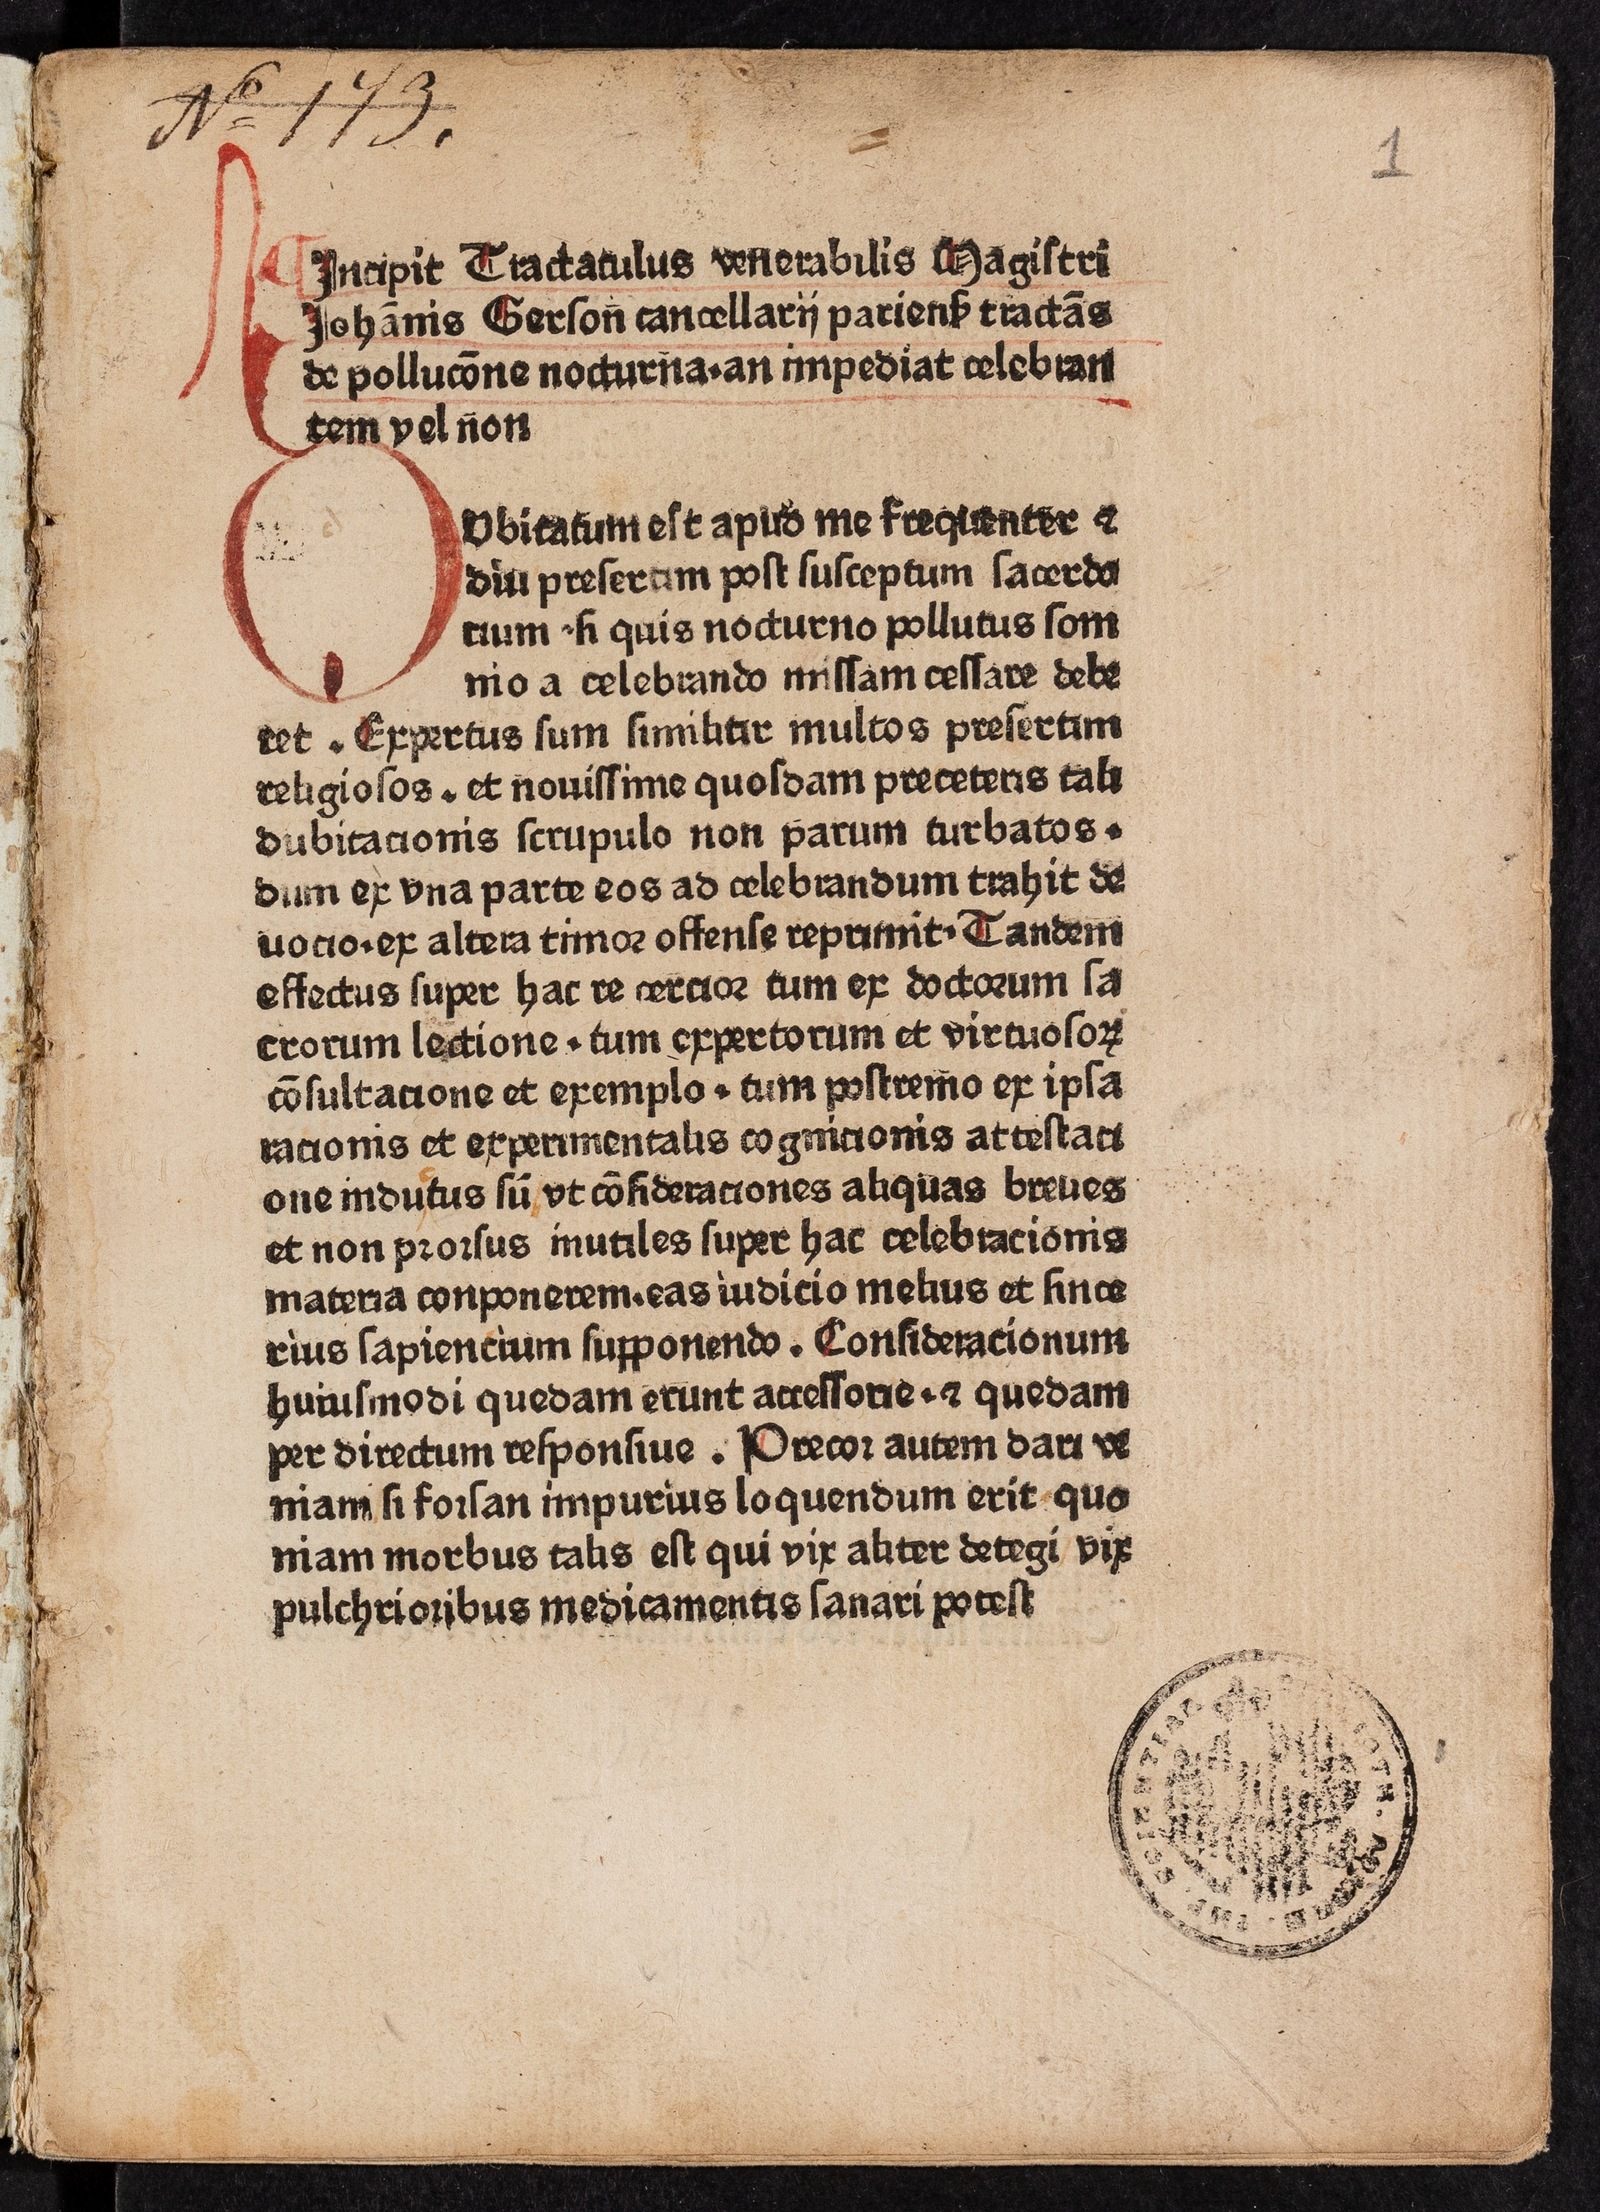 No 173.
1
Incipit Tractatulus venerabilis Magistri
Johānis Gerson cancellarij pariensꝭ tractās
de pollucōne nocturna.an impediat celebran
tem vel non
Dvbitatum est apud me frequenter ⁊
diu presertim post susceptum sacerdo
cium .si quis nocturno pollutus som
nio a celebrando missam cessare debe
ret . Expertus sum similitir multos presertim
religiosos . et nouissime quosdam preceteris tali
dubitacionis scrupulo non parum turbatos .
dum ex vna parte eos ad celebrandum trahit de
uocio.ex altera timor offense reprimit. Tandem
effectus super hac re cercior tum ex doctorum sa
crorum lectione . tum expertorum et virtuosoꝝ
cōsultacione et exemplo . tum postremo ex ipsa
racionis et experimentalis cognicionis attestaci
one indutus sū vt cōsideraciones aliquas breues
et non prorsus inutiles super hac celebracionis
materia conponerem.eas iudicio melius et since
rius sapiencium supponendo . Consideracionum
huiusmodi quedam erunt accessorie . ⁊ quedam
per directum responsiue . Precor autem dari ve
niam si forsan impurius loquendum erit quo
niam morbus talis est qui vix aliter detegi vix
pulchrioribus medicamentis sanari potest